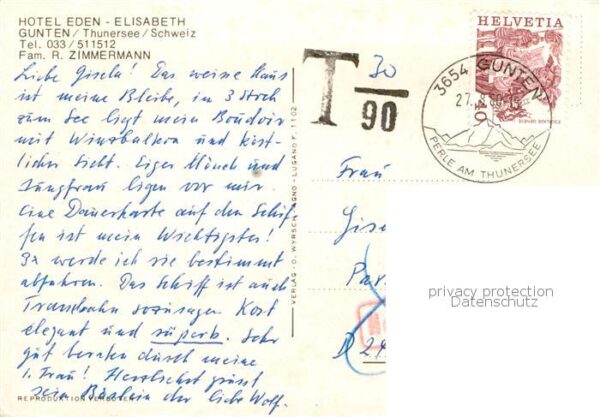 HOTEL EDEN - ELISABETH
GUNTEN / Thunersee / Schweiz
Tel. 033 / 511512
Fam. R. ZIMMERMANN
Liebe Gisela! Das weisse Haus
ist meine Bleibe, im 3 Stock
zum See liegt mein Boudoir
mit Winzbalkon und köst-
licher Sicht. Eiger Mönch und
Jungfrau liegen vor mir.
Eine Dauerkarte auf den Schif-
fen ist mein Wichtigstes!
3x werde ich sie bestimmt
abfahren. Das Schiff ist auch
Trambahn sozusagen. Kost
elegant und superb. Sehr
gut beraten durch meine
1. Frau! Herzlichst grüsst
sein der liebe Wolf.
REPRODUKTION VERBOTEN
VERLAG - O. WYRSCH, AGNO - LUGANO F. 1102
T 30
90
HELVETIA
3654 GUNTEN
27.
PERLE AM THUNERSEE
Frau
Gise
Par
D 24
privacy protection
Datenschutz